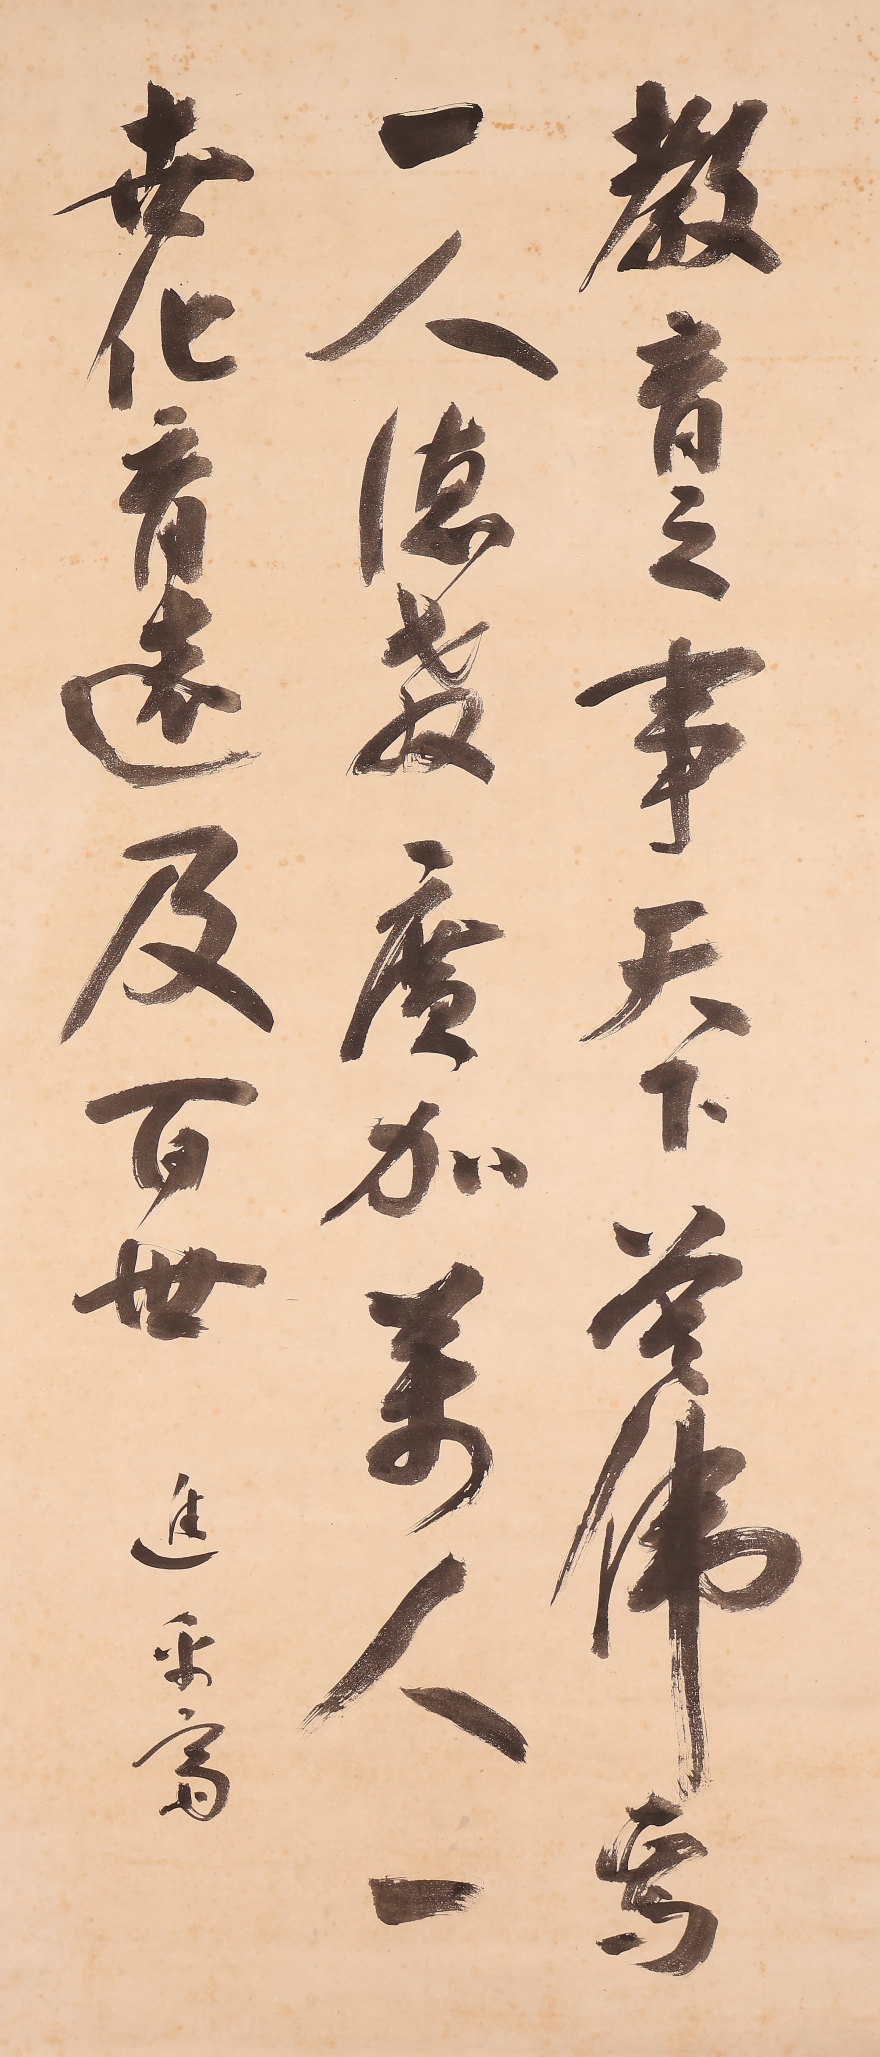 教育之事天下莫偉焉
一人徳教廣加萬人一
世化育遠及百世 進乎斎